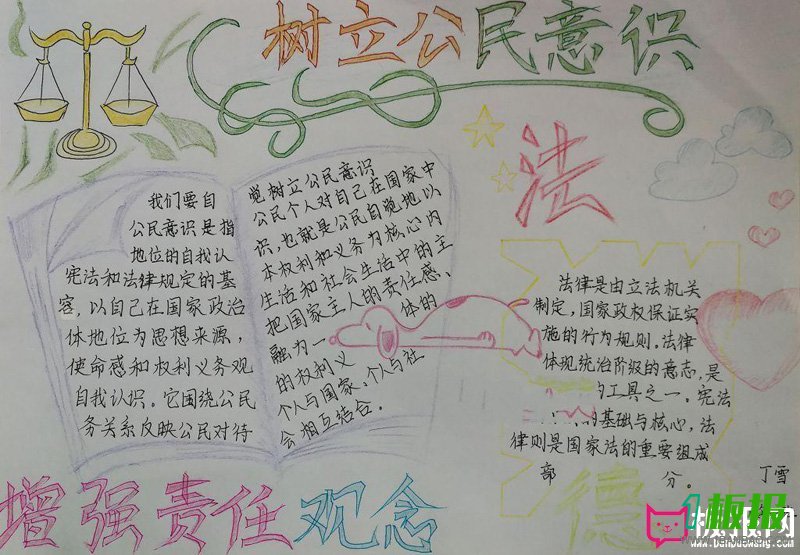 树立公民意识
我们要自
公民意识是指
地位的自我认
宪法和法律规定的基
容，以自己在国家政治
体地位为思想来源，
使命感和权利义务观
自我认识。它围绕公民
务关系反映公民对待
觉树立公民意识
公民个人对自己在国家中
识，也就是公民自觉地以
本权利和义务为核心内
生活和社会生活中的主
把国家主人的责任感、
融为一 体的
的权利义
个人与国家、个人与社
会相互结合。
法
法律是由立法机关
制定，国家政权保证实
施的行为规则。法律
体现统治阶级的意志，是
的工具之一。宪法
的基础与核心，法
律则是国家法的重要组成
部 分。
德
丁雪
增强责任观念
板报网
www.banbaowang.com